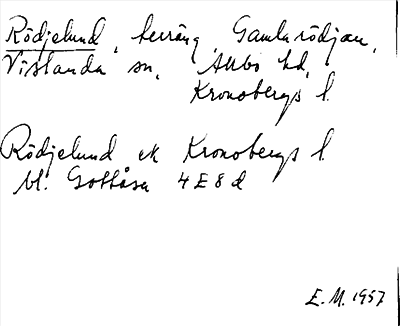 Rödjelund, terräng, Gamlarödjan,
Vislanda sn, Allbo hd,
Kronobergs l.
Rödjelund ek Kronobergs l
bl. Gottåsa 4E8d
E.M. 1957